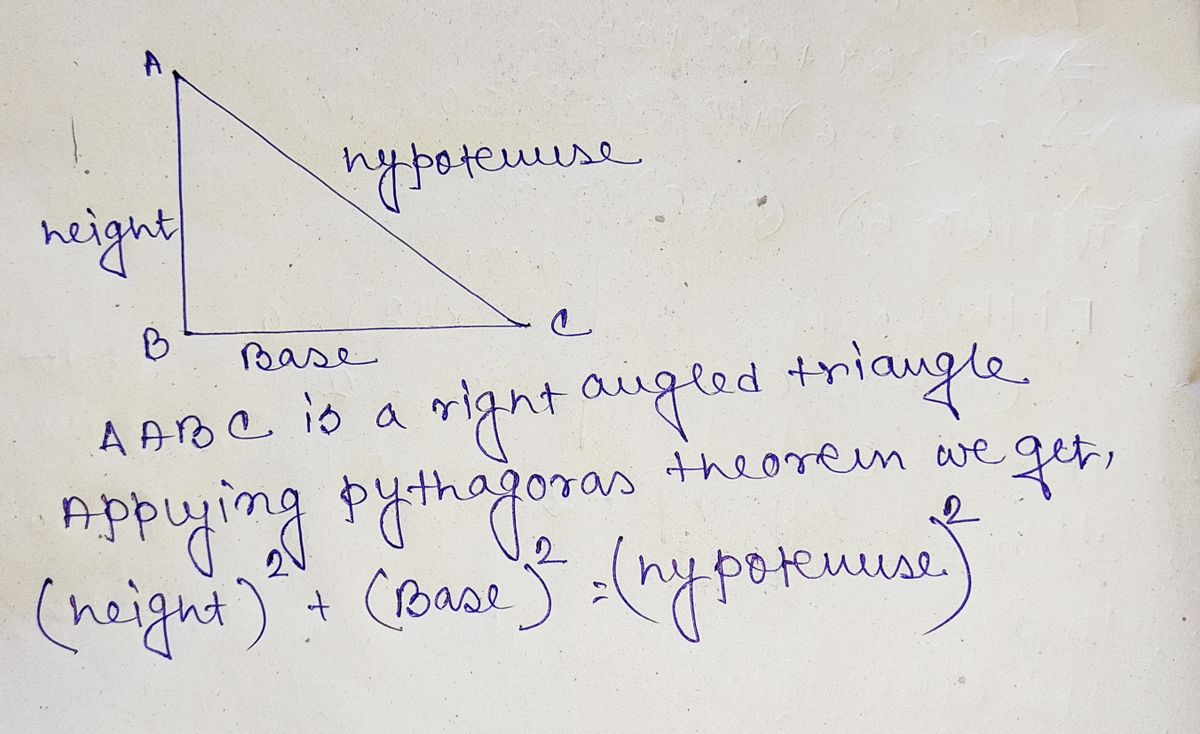 A
hypotenuse
height
B
Base
C
∆ ABC is a right angled triangle
Applying pythagoras theorem we get,
(height)² + (Base)² = (hypotenuse)²